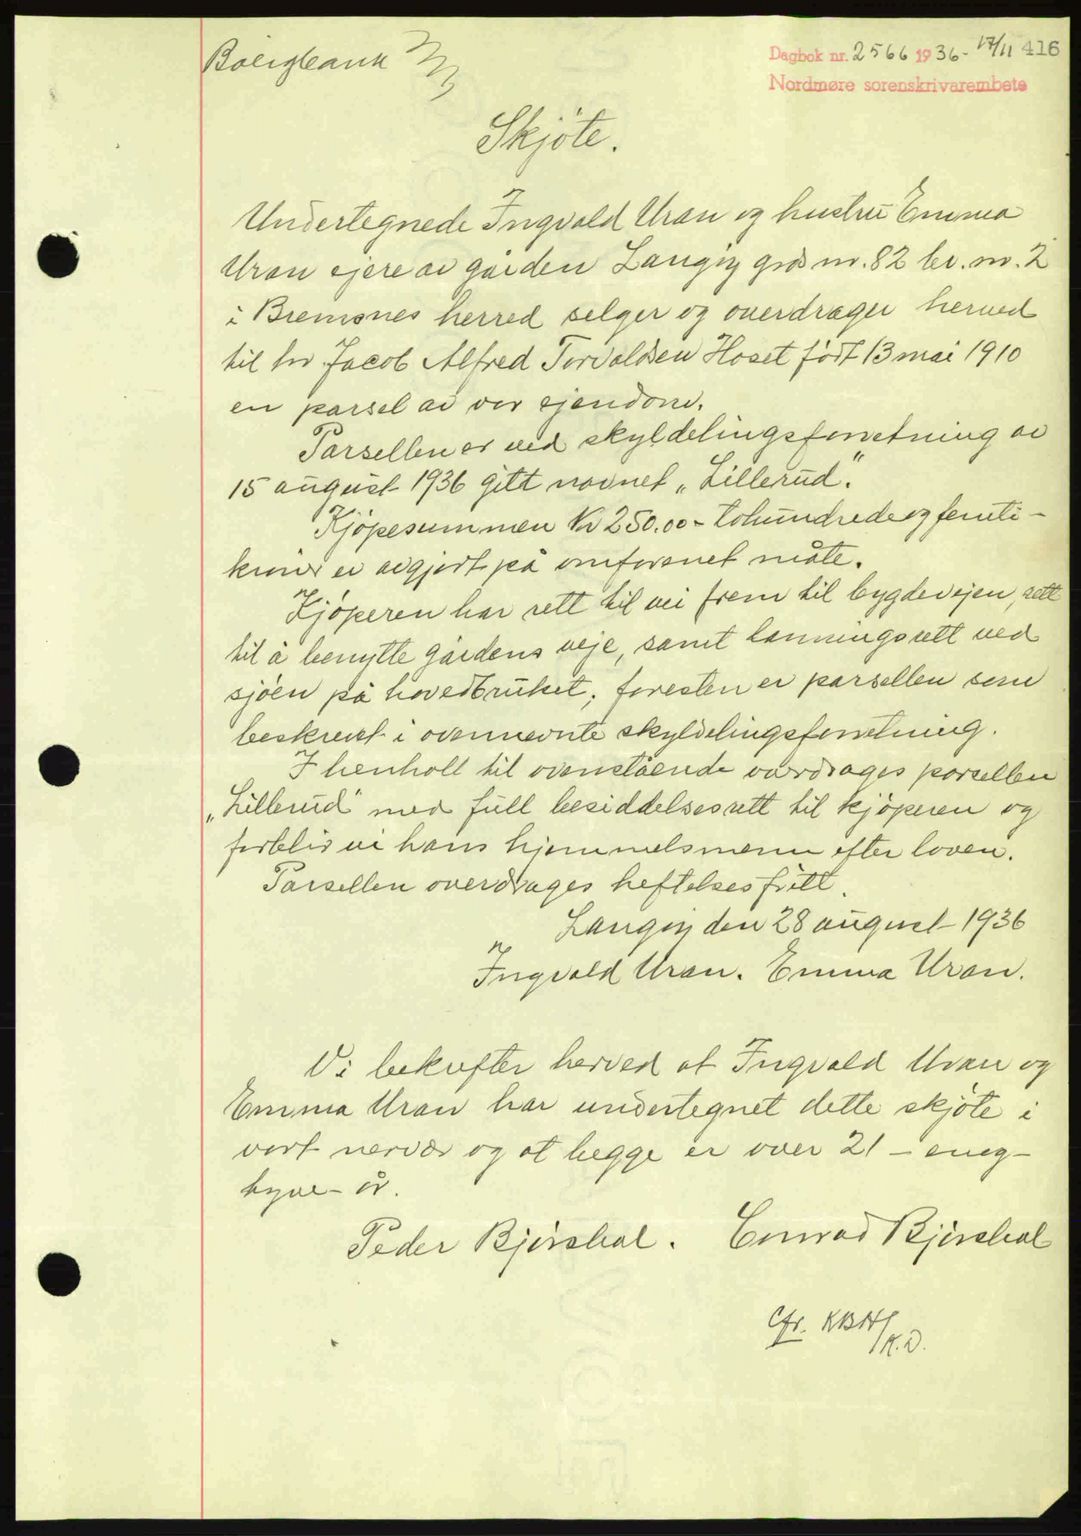 Boligbank
Dagbok nr. 2566 1936 - 17/11 416
Nordmøre sorenskrivarembete
Skjöte.
Undertegnede Ingvald Uran og hustru Emma
Uran ejere av gården Langöy grds nr. 82 br. nr. 2
i Bremsnes herred selger og overdrager herved
til hr Jacob Alfred Torvaldsen Hoset født 13 mai 1910
en parsel av vor ejendom.
Parsellen er ved skyldelingsforretning av
15 august 1936 gitt navnet „Lillerud".
Kjöpesummen Kr 250.00 - tohundredeogfemti -
kroner er avgjort på omforenet måte.
Kjöperen har rett til vei frem til bygdevejen, rett
til å benytte gårdens veje, samt lanningsrett ved
sjöen på hovedbruket; foresten er parsellen som
beskrevet i ovennevnte skyldelingsforretning.
I henholt til ovenstående overdrages parsellen
„Lillerud" med full besiddelsesrett til kjöperen og
forblir vi hans hjemmelsmenn efter loven.
Parsellen overdrages heftelsesfritt.
Langöy den 28 august 1936
Ingvald Uran. Emma Uran.
Vi bekrefter herved at Ingvald Uran og
Emma Uran har undertegnet dette skjöte i
vort nervær og at begge er over 21 - eneg-
tyve - år.
Peder Bjørshol. Conrad Bjørshol
Cfr. KBH/
K.D.